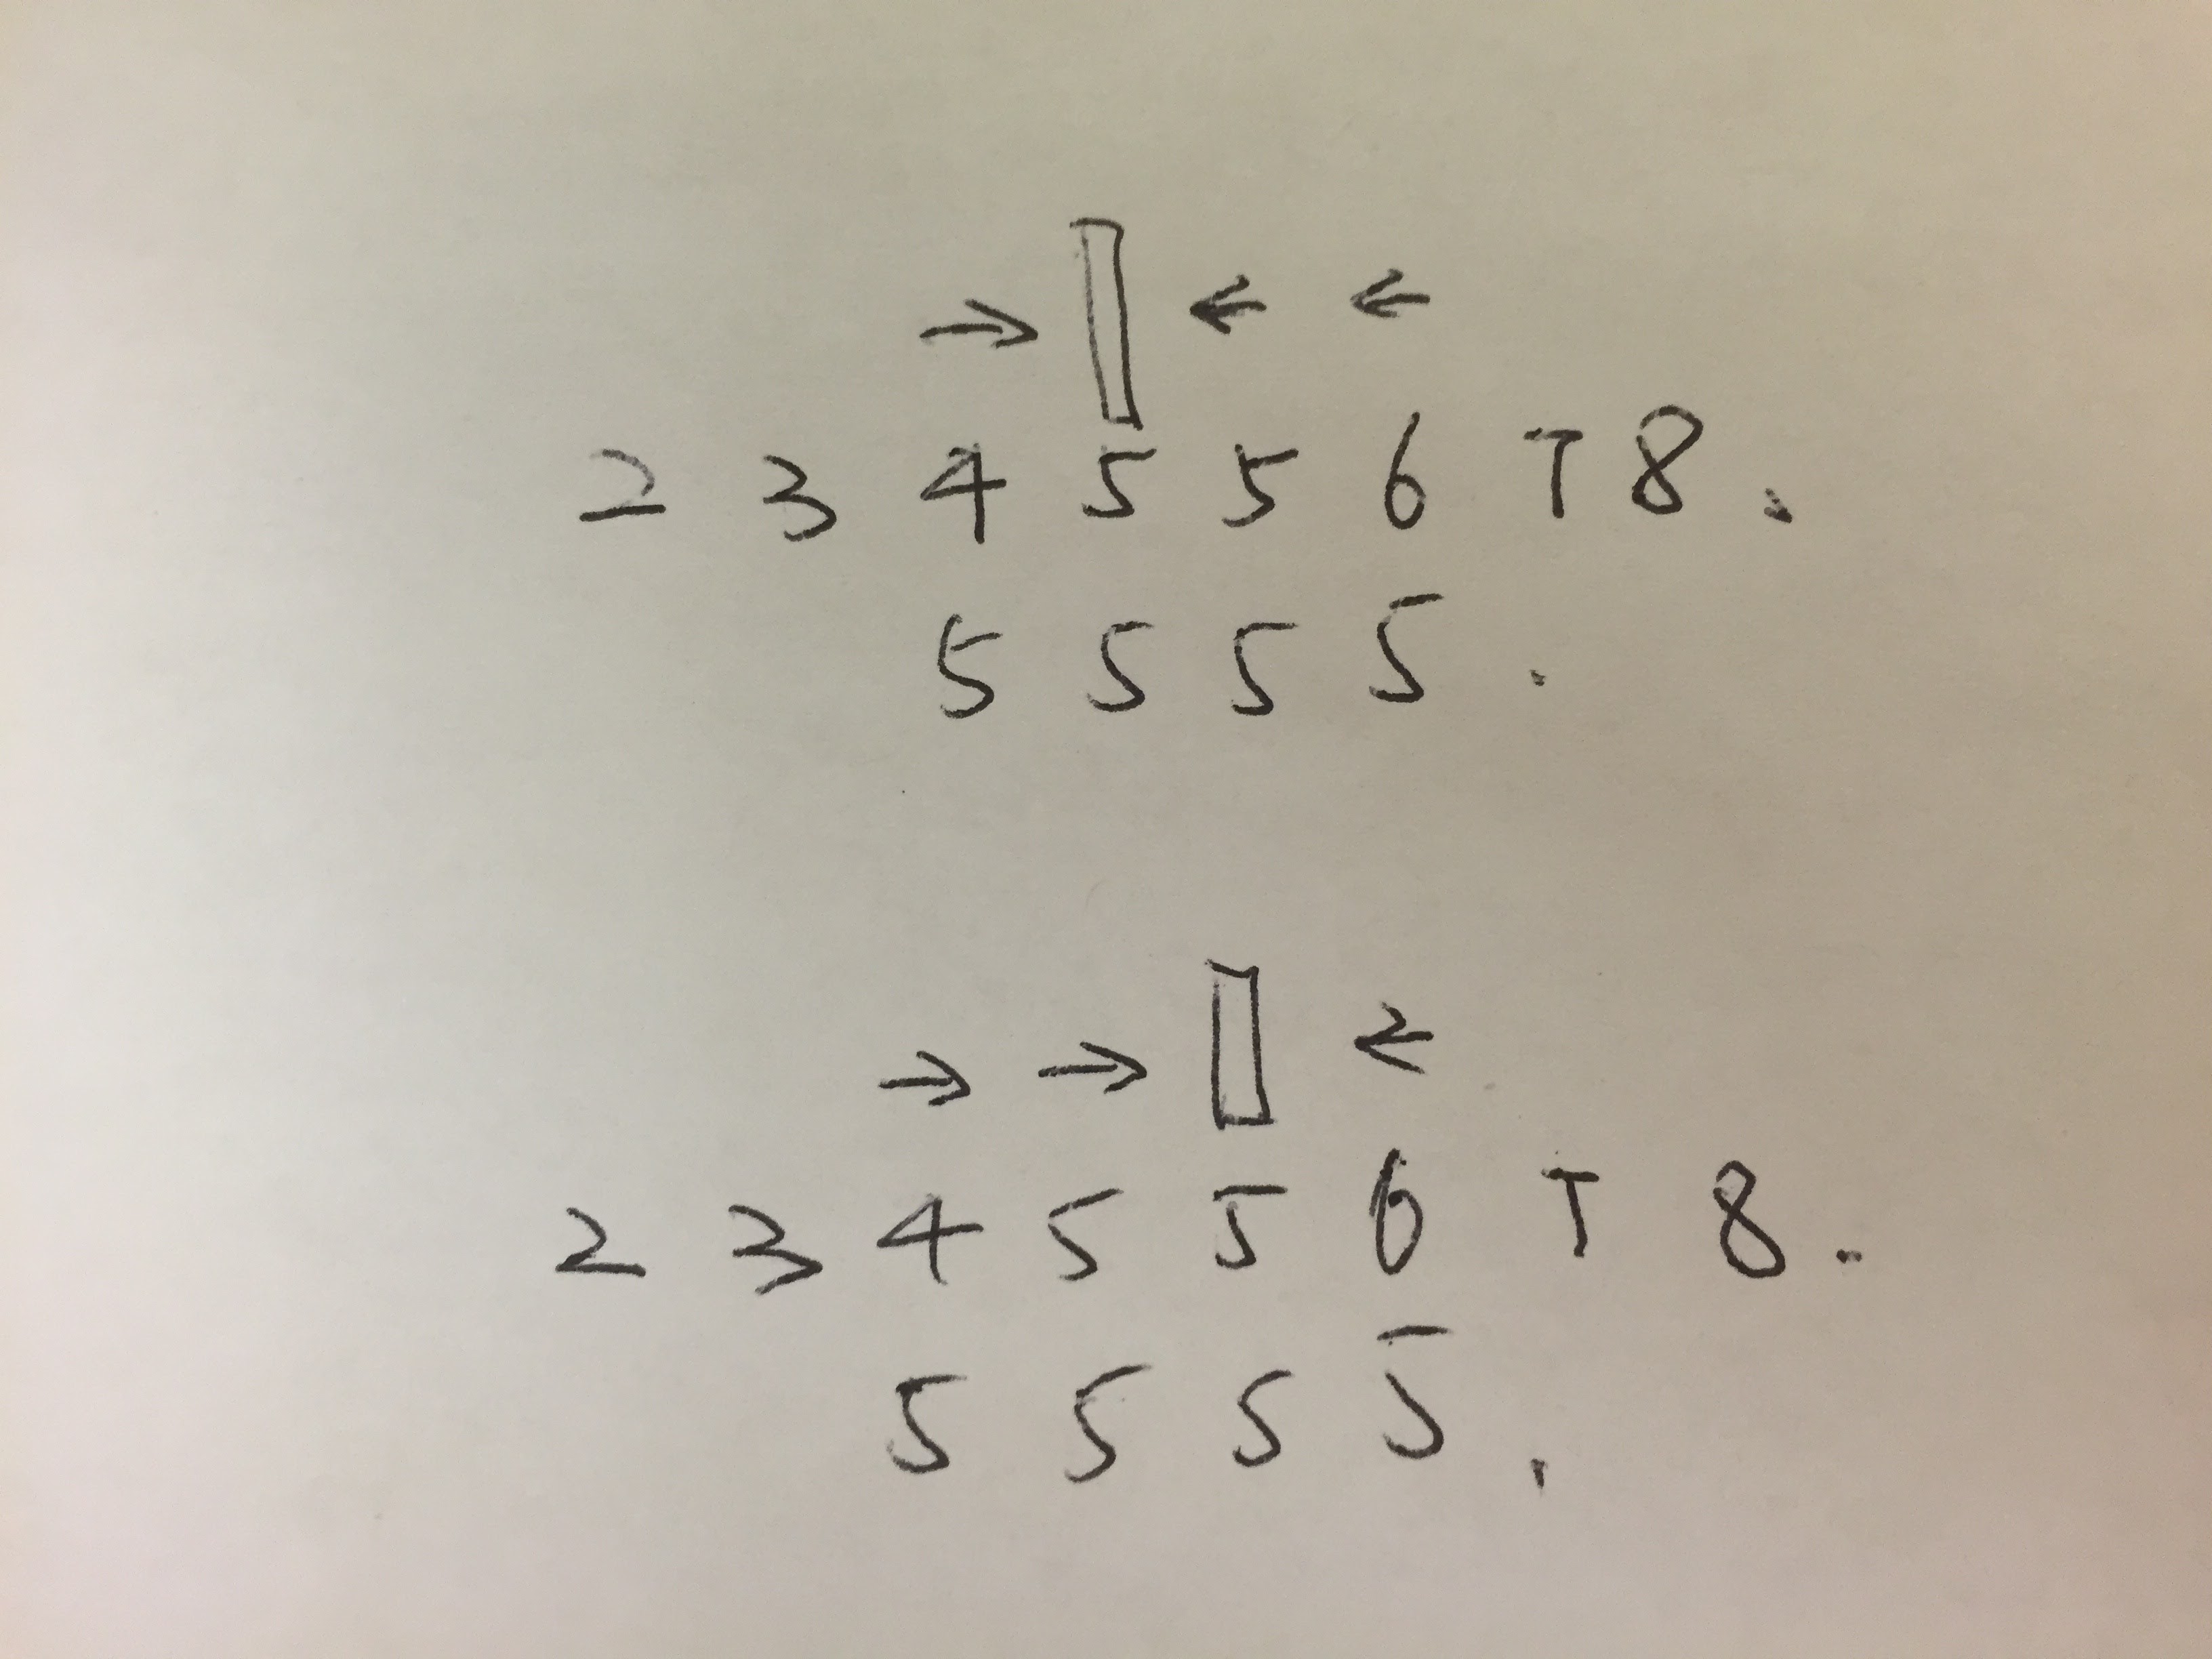 → ← ←
2 3 4 5 5 6 7 8 .
5 5 5 5 .
→ → ←
2 3 4 5 5 6 7 8 .
5 5 5 5 .